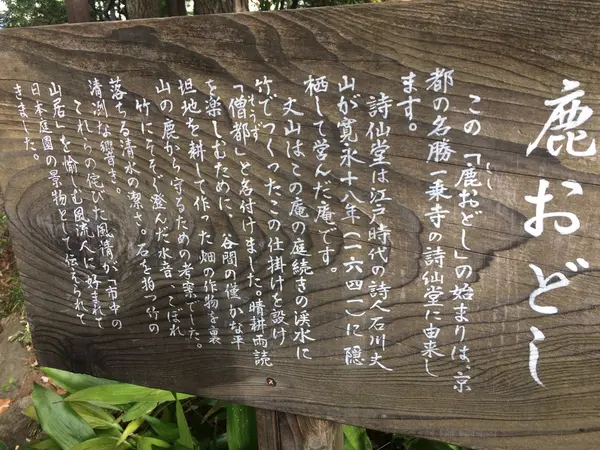 鹿おどし
この「鹿おどし」の始まりは、京
都の名勝一乗寺の詩仙堂に由来し
ます。
詩仙堂は江戸時代の詩人石川丈
山が寛永十八年（一六四一）に隠
栖して営んだ庵です。
丈山はこの庵の庭続きの渓水に
竹でつくったこの仕掛けを設け
「僧都」と名付けました。晴耕雨読
を楽しむために、谷間の僅かな平
坦地を耕して作った畑の作物を裏
山の鹿から守るための考案でした。
竹にそそぐ澄んだ水音、こぼれ
落ちる清水の潔さ。石を拍つ竹の
清冽な響き。
これらの侘びた風情が「市中の
山居」を愉しむ風流人に好まれて
日本庭園の景物として伝えられて
きました。